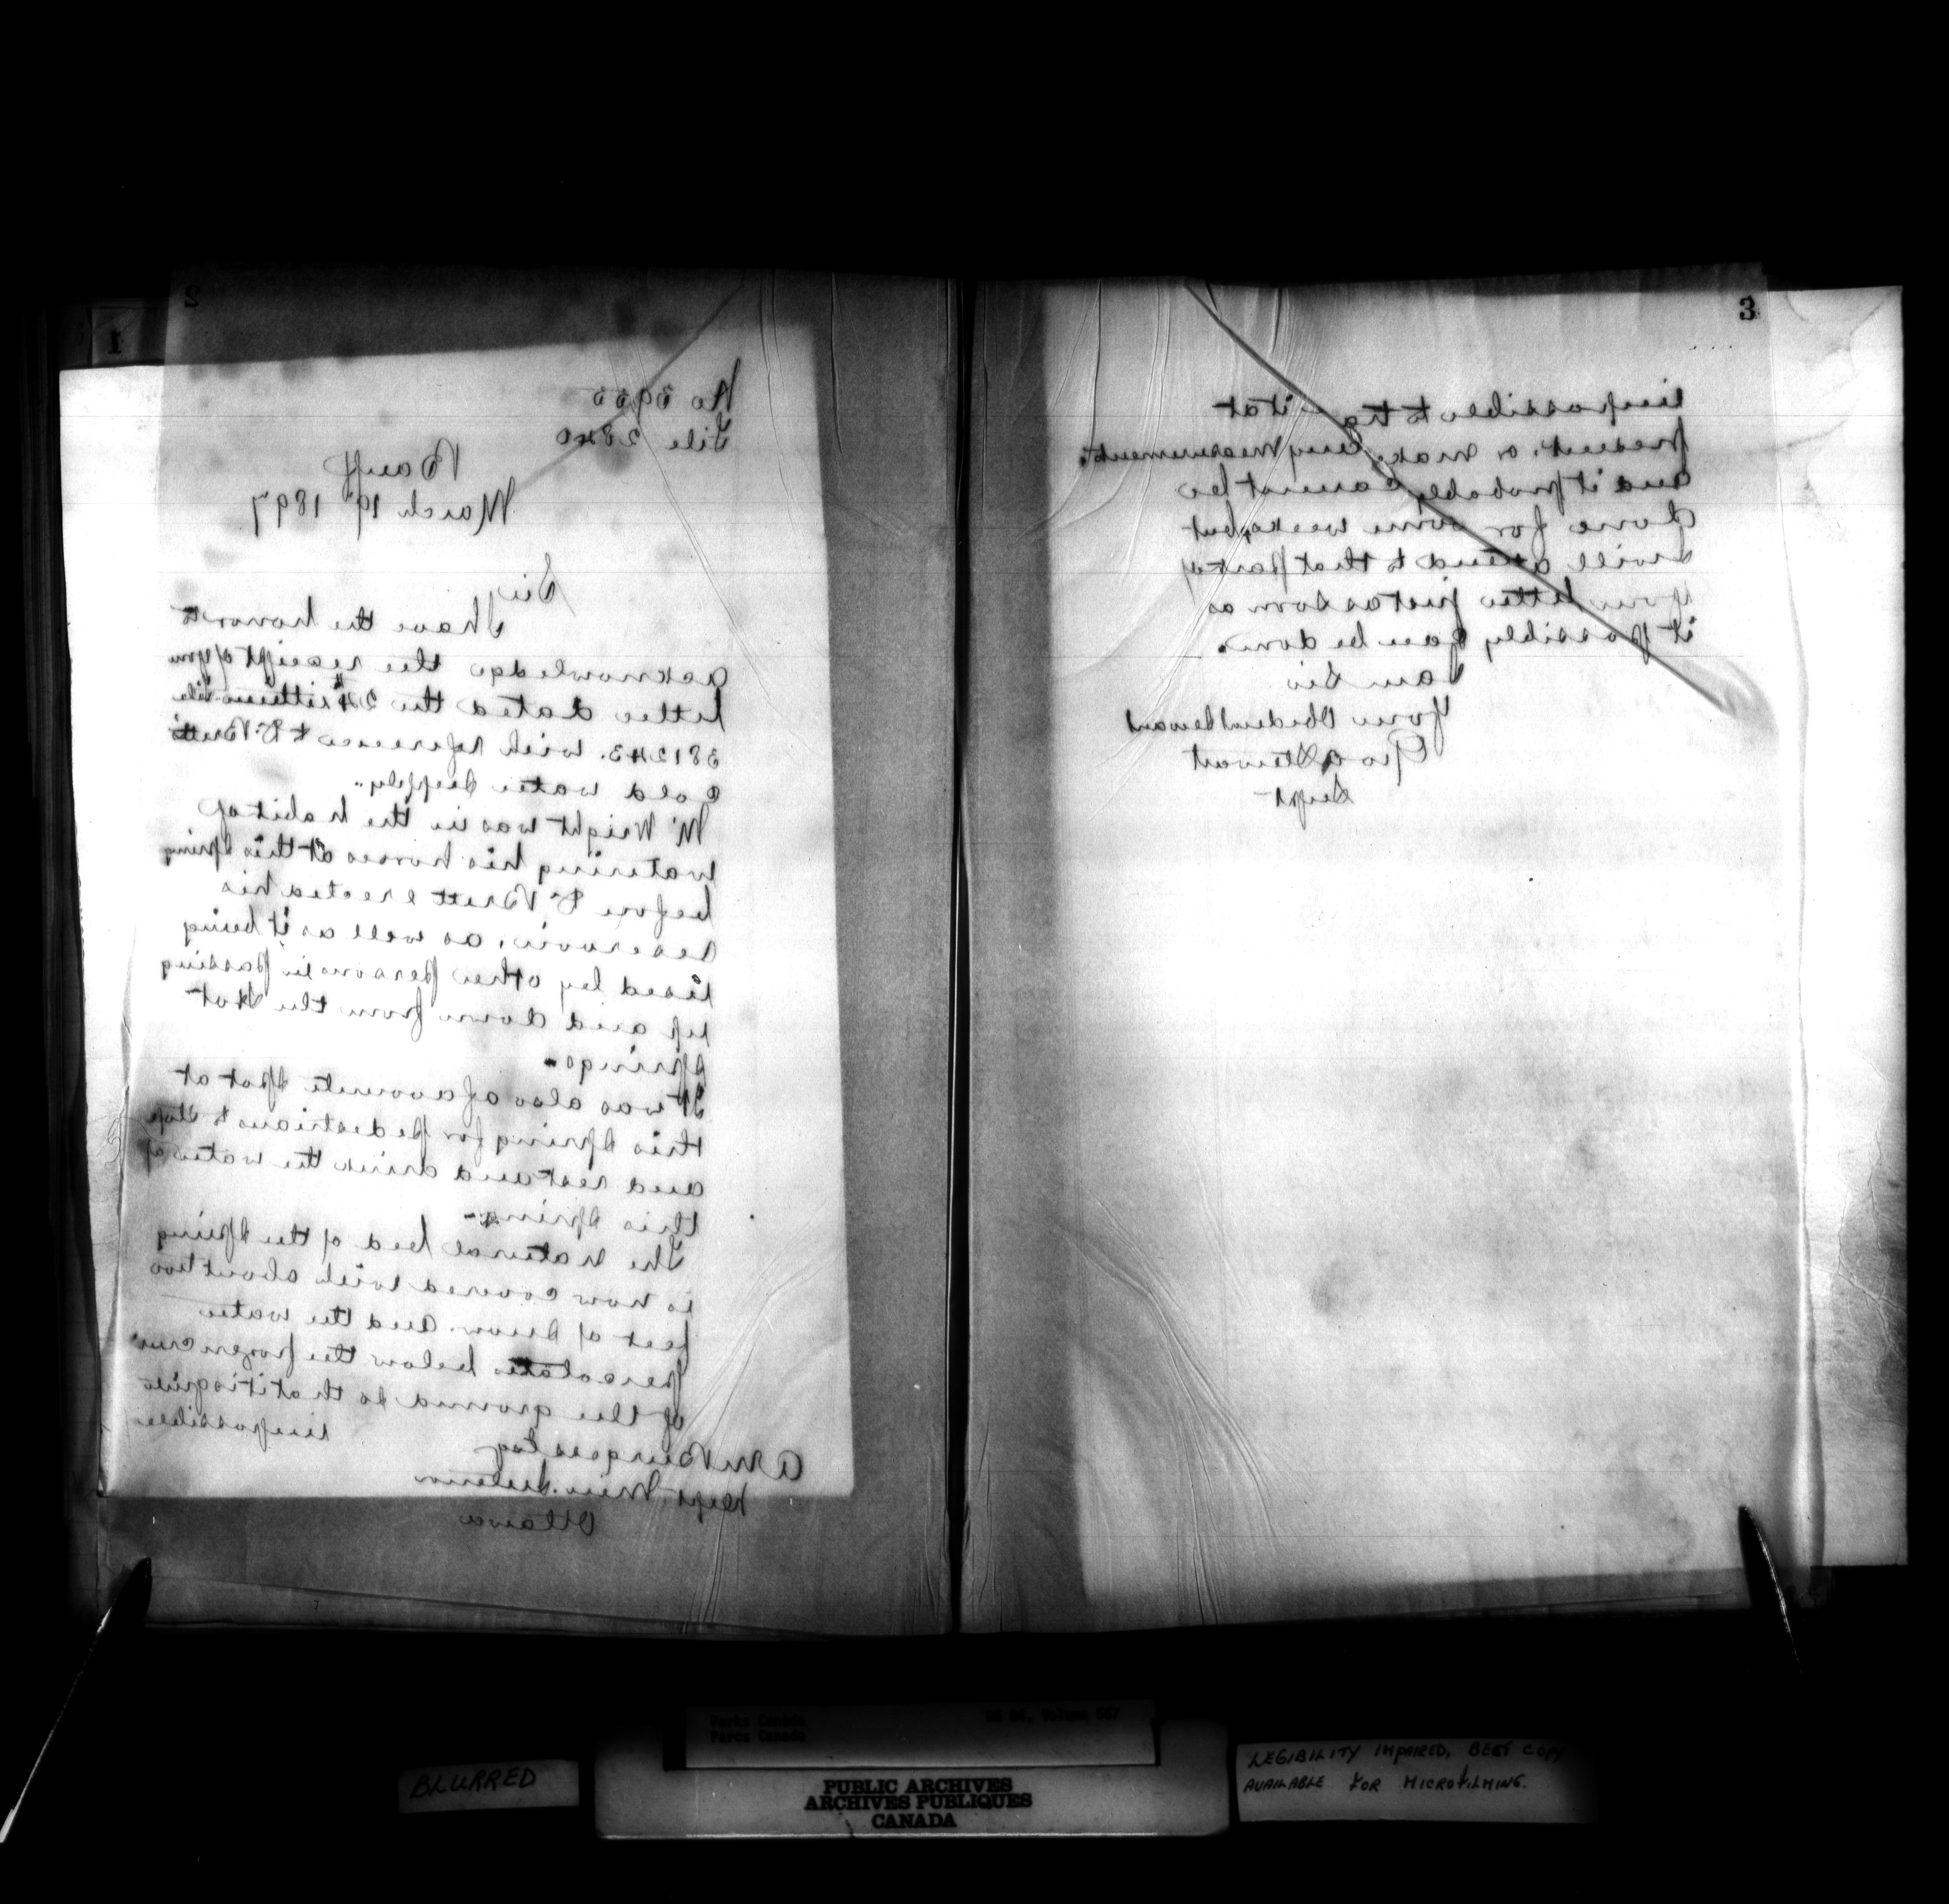 2
1
No 3900
File 2840
Banff
March 19th 1897
Sir
I have the honor to
acknowledge the receipt of your
letter dated the 24th file
381243. with reference to Dr Bretts
Cold water supply.
Mr Wright was in the habit of
watering his horses at this spring
before Dr Brett erected his
reservoir, as well as it being
used by other persons in passing
up and down from the Hot
springs.
It was also a favourite spot at
this spring for pedestrians to stop
and rest and drink the water of
this spring.
The natural bed of the spring
is now covered with about two
feet of snow and the water
percolates below the frozen crust
of the ground so that it is quite
impossible
A M Burgess Esq
Dept. Min. Interior
Ottawa
3
impossible to it at
present, or make any measurement.
and it probably cannot be
done for some weeks, but
I will attend to that part of
your letter just as soon as
it possibly can be done.
I am Sir
Your Obedient Servant
Geo A Stewart
Supt
Parks Canada
Parcs Canada
RG 84, Volume 567
BLURRED
PUBLIC ARCHIVES
ARCHIVES PUBLIQUES
CANADA
LEGIBILITY IMPAIRED, BEST COPY
AVAILABLE FOR MICROFILMING.